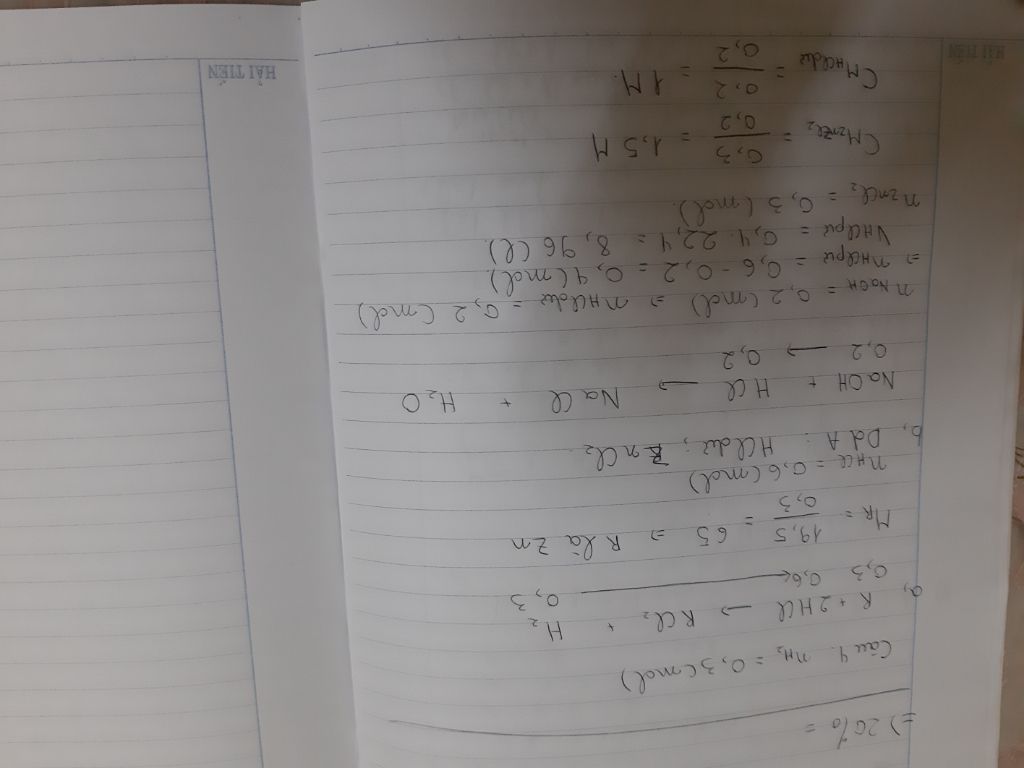 => 20% =
Câu 4. nH₂ = 0,3 (mol)
a, R + 2HCl → RCl₂ + H₂
0,3 0,6 ← 0,3
MR = 19,5 / 0,3 = 65 ⇒ R là Zn
nHCl = 0,6 (mol)
b, Dd A : HCl dư ; ZnCl₂
NaOH + HCl → NaCl + H₂O
0,2 → 0,2
nNaOH = 0,2 (mol) ⇒ nHCl dư = 0,2 (mol)
⇒ nHCl pư = 0,6 - 0,2 = 0,4 (mol)
VHCl pư = 0,4. 22,4 = 8,96 (l)
nZnCl₂ = 0,3 (mol).
CMZnCl₂ = 0,3 / 0,2 = 1,5 M
CMHCl dư = 0,2 / 0,2 = 1 M.
HẢI TIẾN
HẢI TIẾN